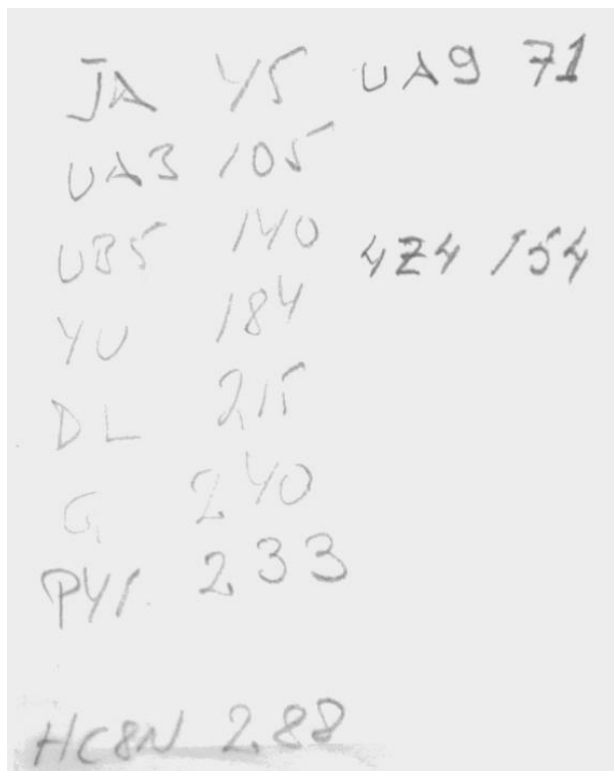 JA 45 UA9 71
UA3 105
UB5 140
4Z4 154
YU 184
DL 215
G 240
PY1. 233
HC8N 288